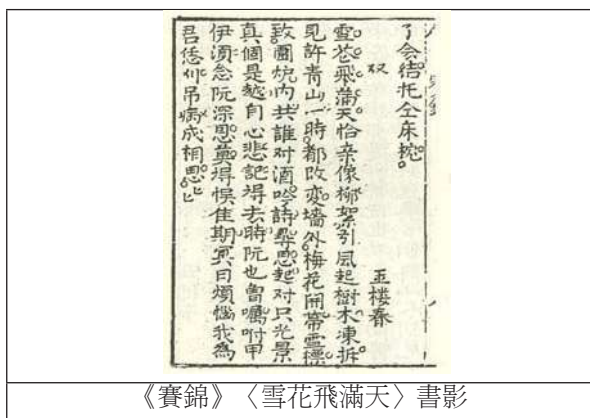 了会結托仝床捥
双 玉楼春
雪花飛滿天恰亲像柳絮引風起樹木凍拆
見許青山一時都改変墻外梅花開帶雪標
致圍炕內共誰对酒吟詩尋思起对只光景
真個是越自心悲記得去時阮也曾囑咐甲
伊湏念阮深恩莫得悞佳期冥日煩惱我為
君恁吊病成相思
《賽錦》〈雪花飛滿天〉書影